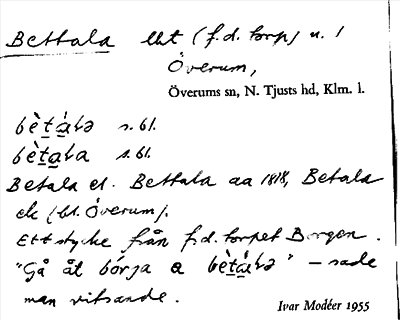 Bettala lht (f.d. torp) u. /
Överum,
Överums sn, N. Tjusts hd, Klm. l.
bèt̲á̲la s.bl.
bèt̲a̲la s.bl.
Betala el. Bettala aa 1818, Betala
ek (bl. Överum).
Ett stycke från f.d. torpet Borgen.
"Gå åt bórja a bèt̲á̲la" – sade
man vitsande.
Ivar Modéer 1955